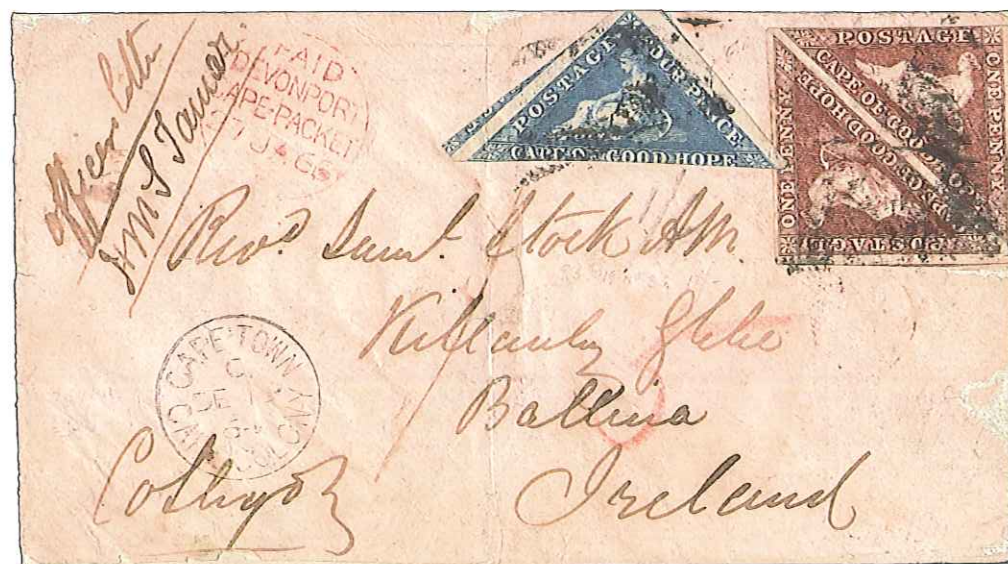 Officer's letter
HMS Tamar.
PAID
DEVONPORT
CAPE-PACKET
POSTAGE
FOUR PENCE
CAPE OF GOOD HOPE
POSTAGE
ONE PENNY
CAPE OF GOOD HOPE
CAPE OF GOOD HOPE
ONE PENNY
POSTAGE
Revd. Saml. Stock AM.
Killanly Glebe
Ballina
Ireland
CAPE TOWN
COLONY